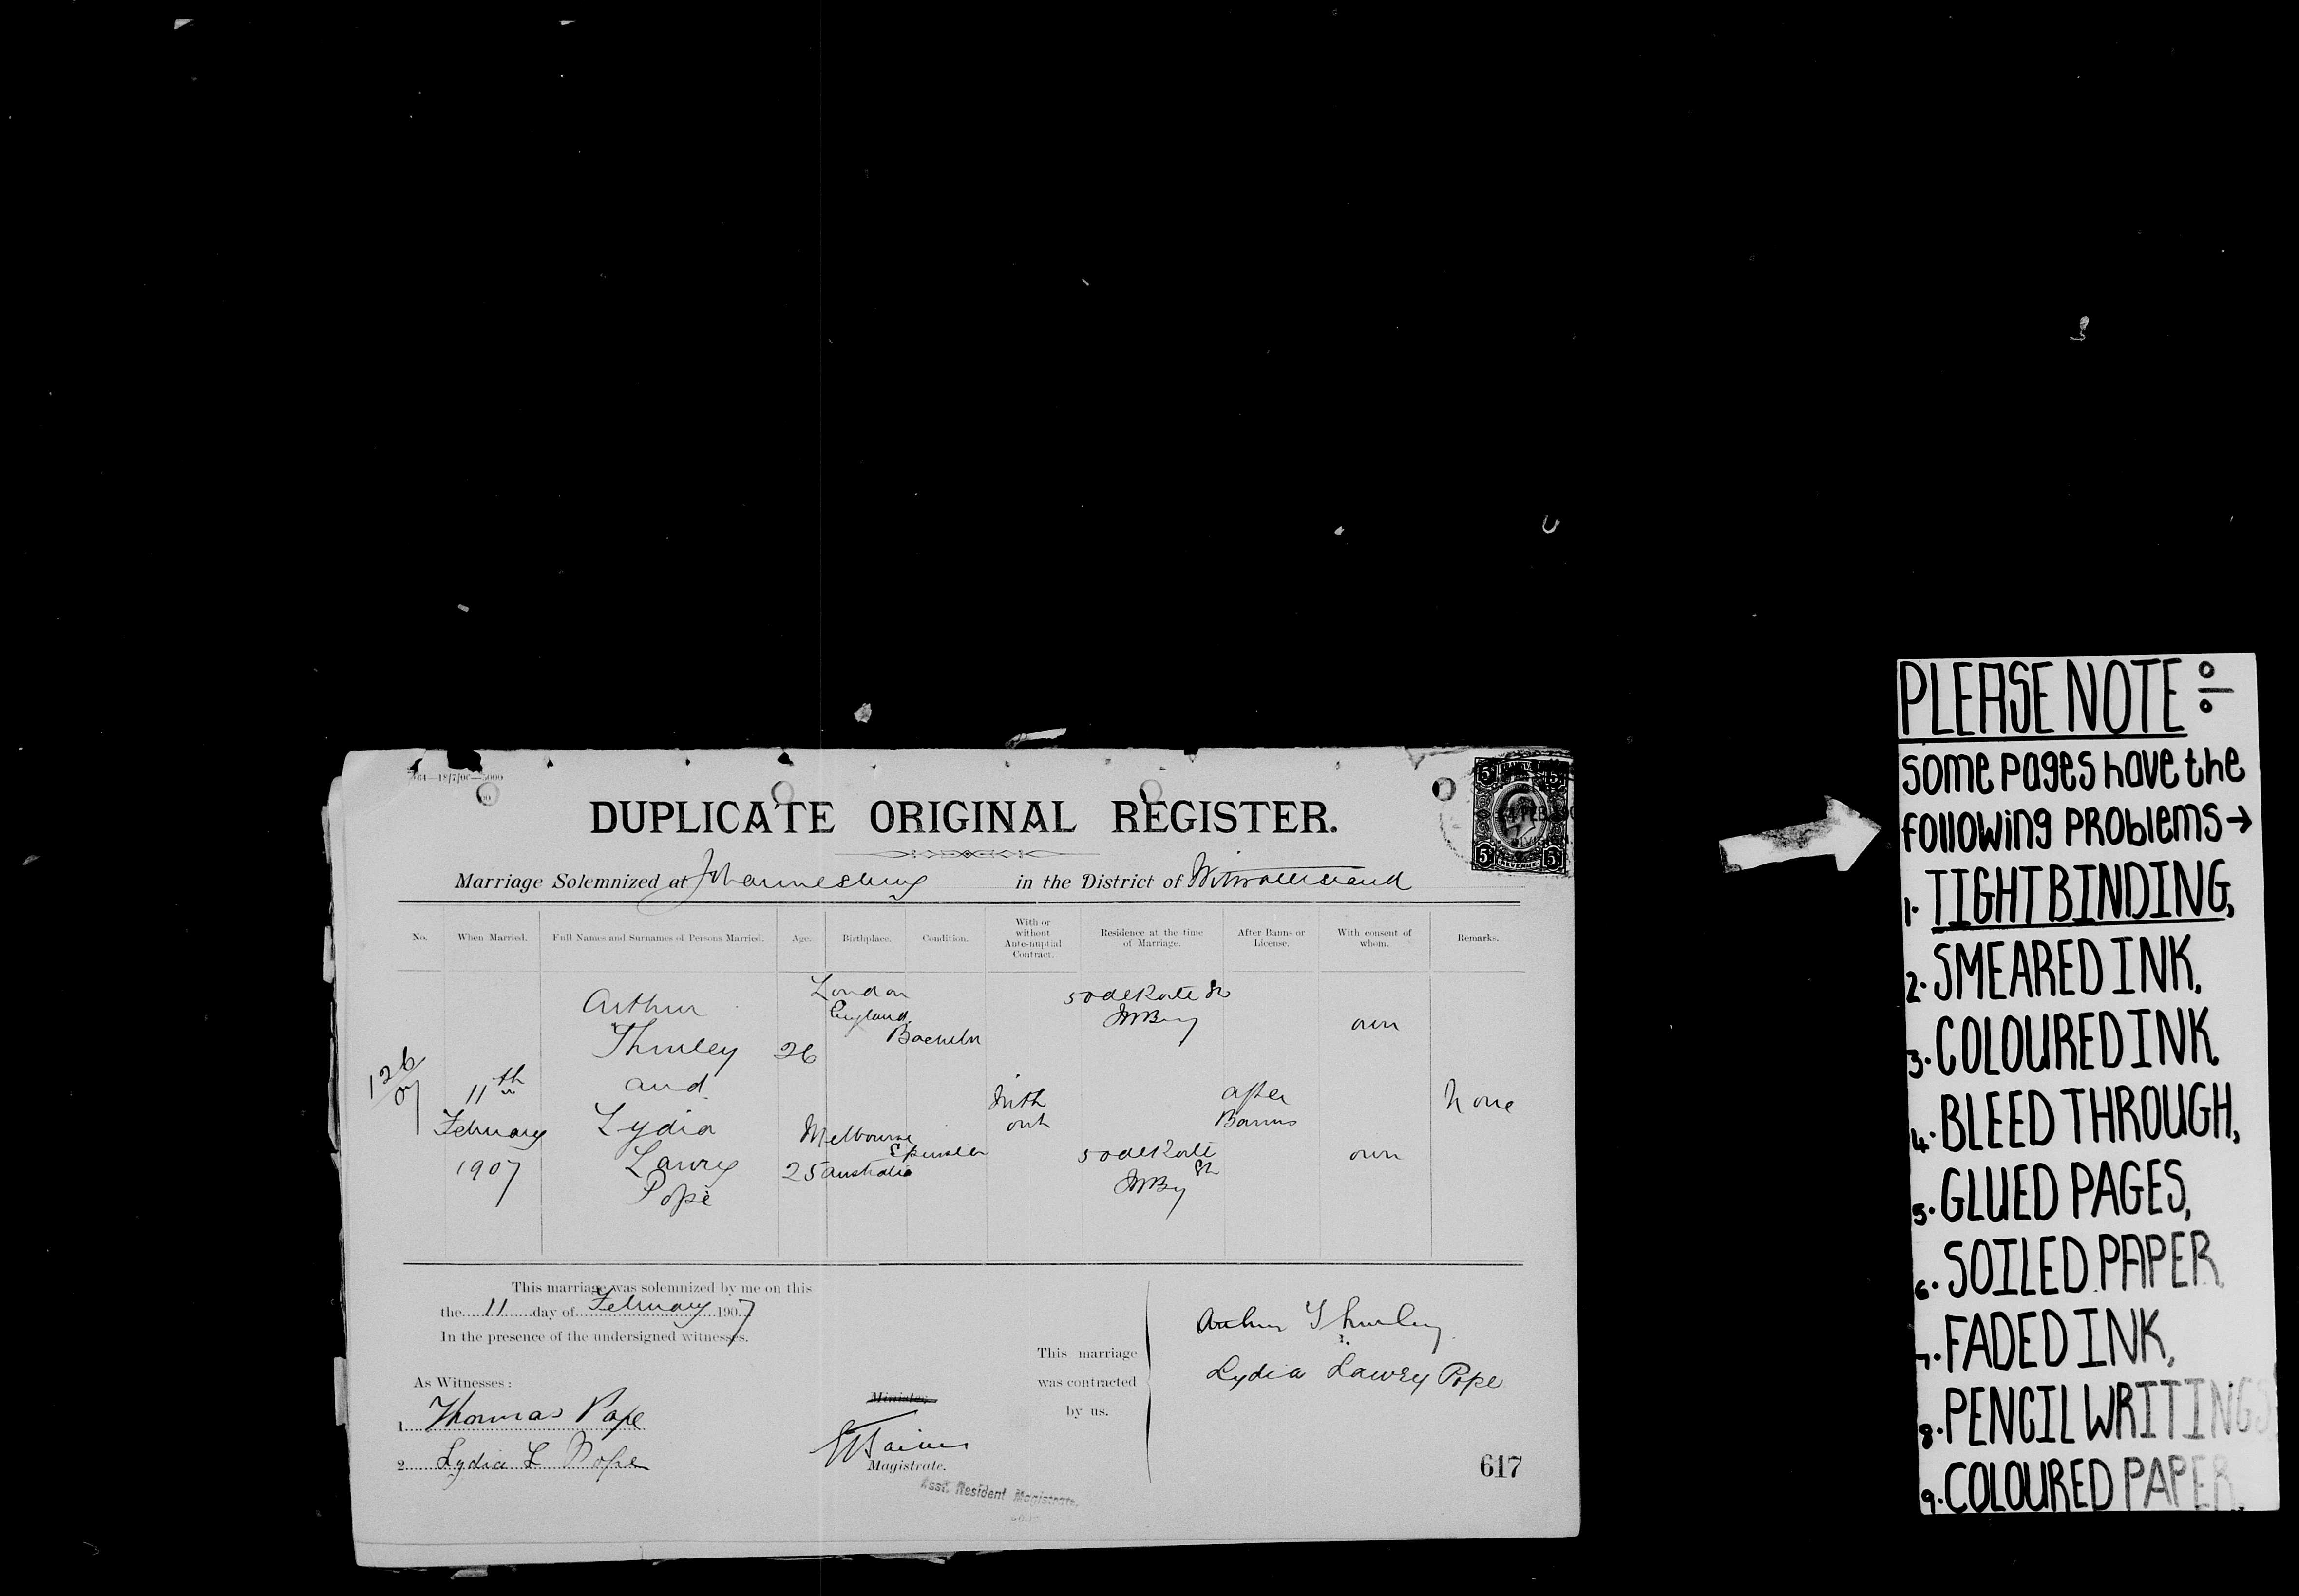 DUPLICATE ORIGINAL REGISTER.
Marriage Solemnized at Johannesburg in the District of Witwatersrand
No. When Married. Full Names and Surnames of Persons Married. Age. Birthplace. Condition. With or without Ante-nuptial Contract. Residence at the time of Marriage. After Banns or License. With consent of whom. Remarks.
126/07
11th
February
1907
Arthur
Thurley
and
Lydia
Lawry
Pope
26
25
London
England
Melbourne
Australia
Bachelor
Spinster
With
out
50 de Korte St
JHBurg
50 de Korte
St
JHBg
after
Banns
own
own
None
This marriage was solemnized by me on this
the 11 day of February 1907
In the presence of the undersigned witnesses.
As Witnesses:
1. Thomas Pope
2. Lydia L Pope
Minister.
Magistrate.
Asst. Resident Magistrate.
This marriage
was contracted
by us.
Arthur Thurley
Lydia Lawry Pope
617
PLEASE NOTE :-
some pages have the
following problems →
1. TIGHT BINDING,
2. SMEARED INK,
3. COLOURED INK,
4. BLEED THROUGH,
5. GLUED PAGES,
6. SOILED PAPER,
7. FADED INK,
8. PENCIL WRITINGS,
9. COLOURED PAPER.